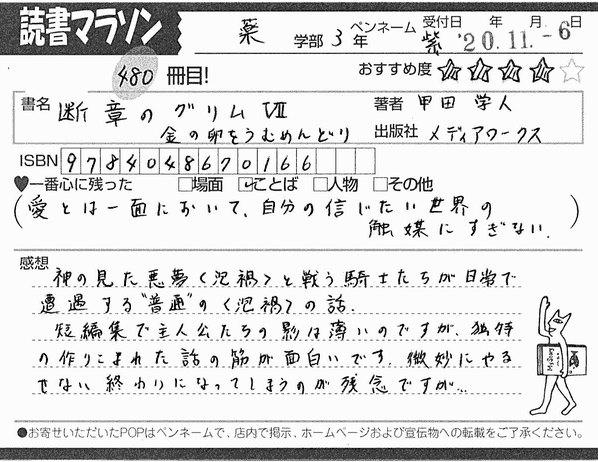 読書マラソン
薬 学部 3 年 ペンネーム 紫 受付日 年 月 日
'20.11.-6
480 冊目! おすすめ度 ★★★★☆
書名 断章のグリム Ⅶ 著者 甲田 学人
金の卵をうむめんどり 出版社 メディアワークス
ISBN 9784048670166
♥一番心に残った □場面 ☑ことば □人物 □その他
(愛とは一面において、自分の信じたい世界の
触媒にすぎない.)
感想
神の見た悪夢〈泡禍〉と戦う騎士たちが日常で
遭遇する"普通"の〈泡禍〉の話.
短編集で主人公たちの影は薄いのですが、独特
の作りこまれた話の筋が面白いです. 微妙にやる
せない終わりになってしまうのが残念ですが…
●お寄せいただいたPOPはペンネームで、店内で掲示、ホームページおよび宣伝物への転載をご了承ください。